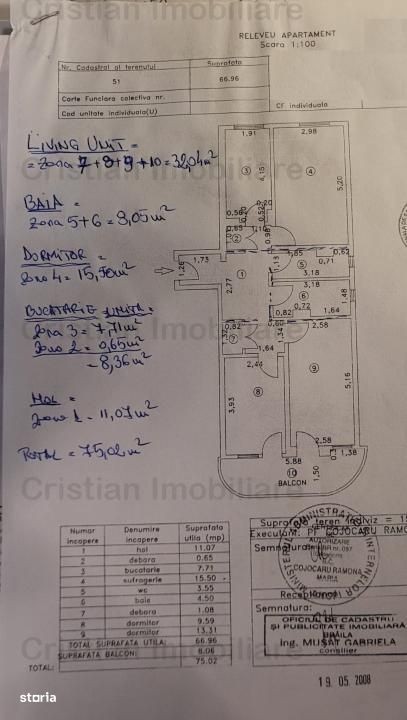 Cristian Imobiliare
RELEVEU APARTAMENT
Scara 1:100
Nr. Cadastral al terenului
Suprafata
51
66.96
Carte Funciara colectiva nr.
Cad unitate individuala(U)
CF individuala
LIVING UNIT =
= zona 7+8+9+10 = 32,04 m²
BAIA =
zona 5+6 = 8,05 m²
DORMITOR =
zona 4 = 15,50 m²
BUCATARIE UNITA =
zona 3 = 7,71 m²
zona 2 = 0,65 m²
= 8,36 m²
HOL =
zona 1 = 11,07 m²
TOTAL = 75,02 m²
1,91
2,98
3
4,15
4
5,20
2,20
0,56
0,52
0,65
1,10
2
0,98
1,73
1,26
1
2,77
1,13
1,85
0,62
5
0,71
3,18
3,18
6
1,48
0,72
0,82
1,64
0,82
7
1,34
2,58
1,64
2,44
9
8
3,93
5,16
2,58
5,88
1,38
10
1,50
BALCON
Cristian Imobiliare
Cristian Imobiliare
Cristian Imobiliare
Numar incapere
Denumire incapere
Suprafata utila (mp)
1 hol 11.07
2 debara 0.65
3 bucatarie 7.71
4 sufragerie 15.50
5 wc 3.55
6 baie 4.50
7 debara 1.08
8 dormitor 9.59
9 dormitor 13.31
TOTAL SUPRAFATA UTILA: 66.96
SUPRAFATA BALCON: 8.06
TOTAL: 75.02
Suprafata teren indiviz = 15
Executant: PF COJOCARU RAMO
Semnatura:
AUTORIZARE
COJOCARU RAMONA
MARIA
Receptionat
Semnatura:
OFICIUL DE CADASTRU
ŞI PUBLICITATE IMOBILIARĂ
BRĂILA
Ing. MUŞAT GABRIELA
consilier
19. 05. 2008
Cristian Imobiliare
storia